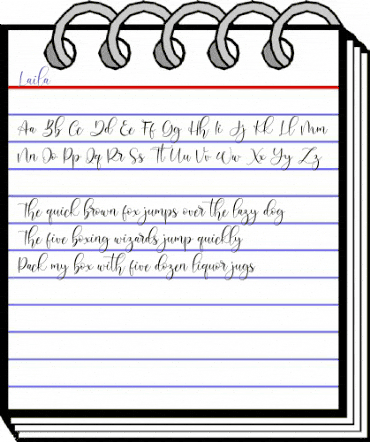 Laila
Aa Bb Cc Dd Ee Ff Gg Hh Ii Jj Kk Ll Mm
Nn Oo Pp Qq Rr Ss Tt Uu Vv Ww Xx Yy Zz
The quick brown fox jumps over the lazy dog
The five boxing wizards jump quickly
Pack my box with five dozen liquor jugs